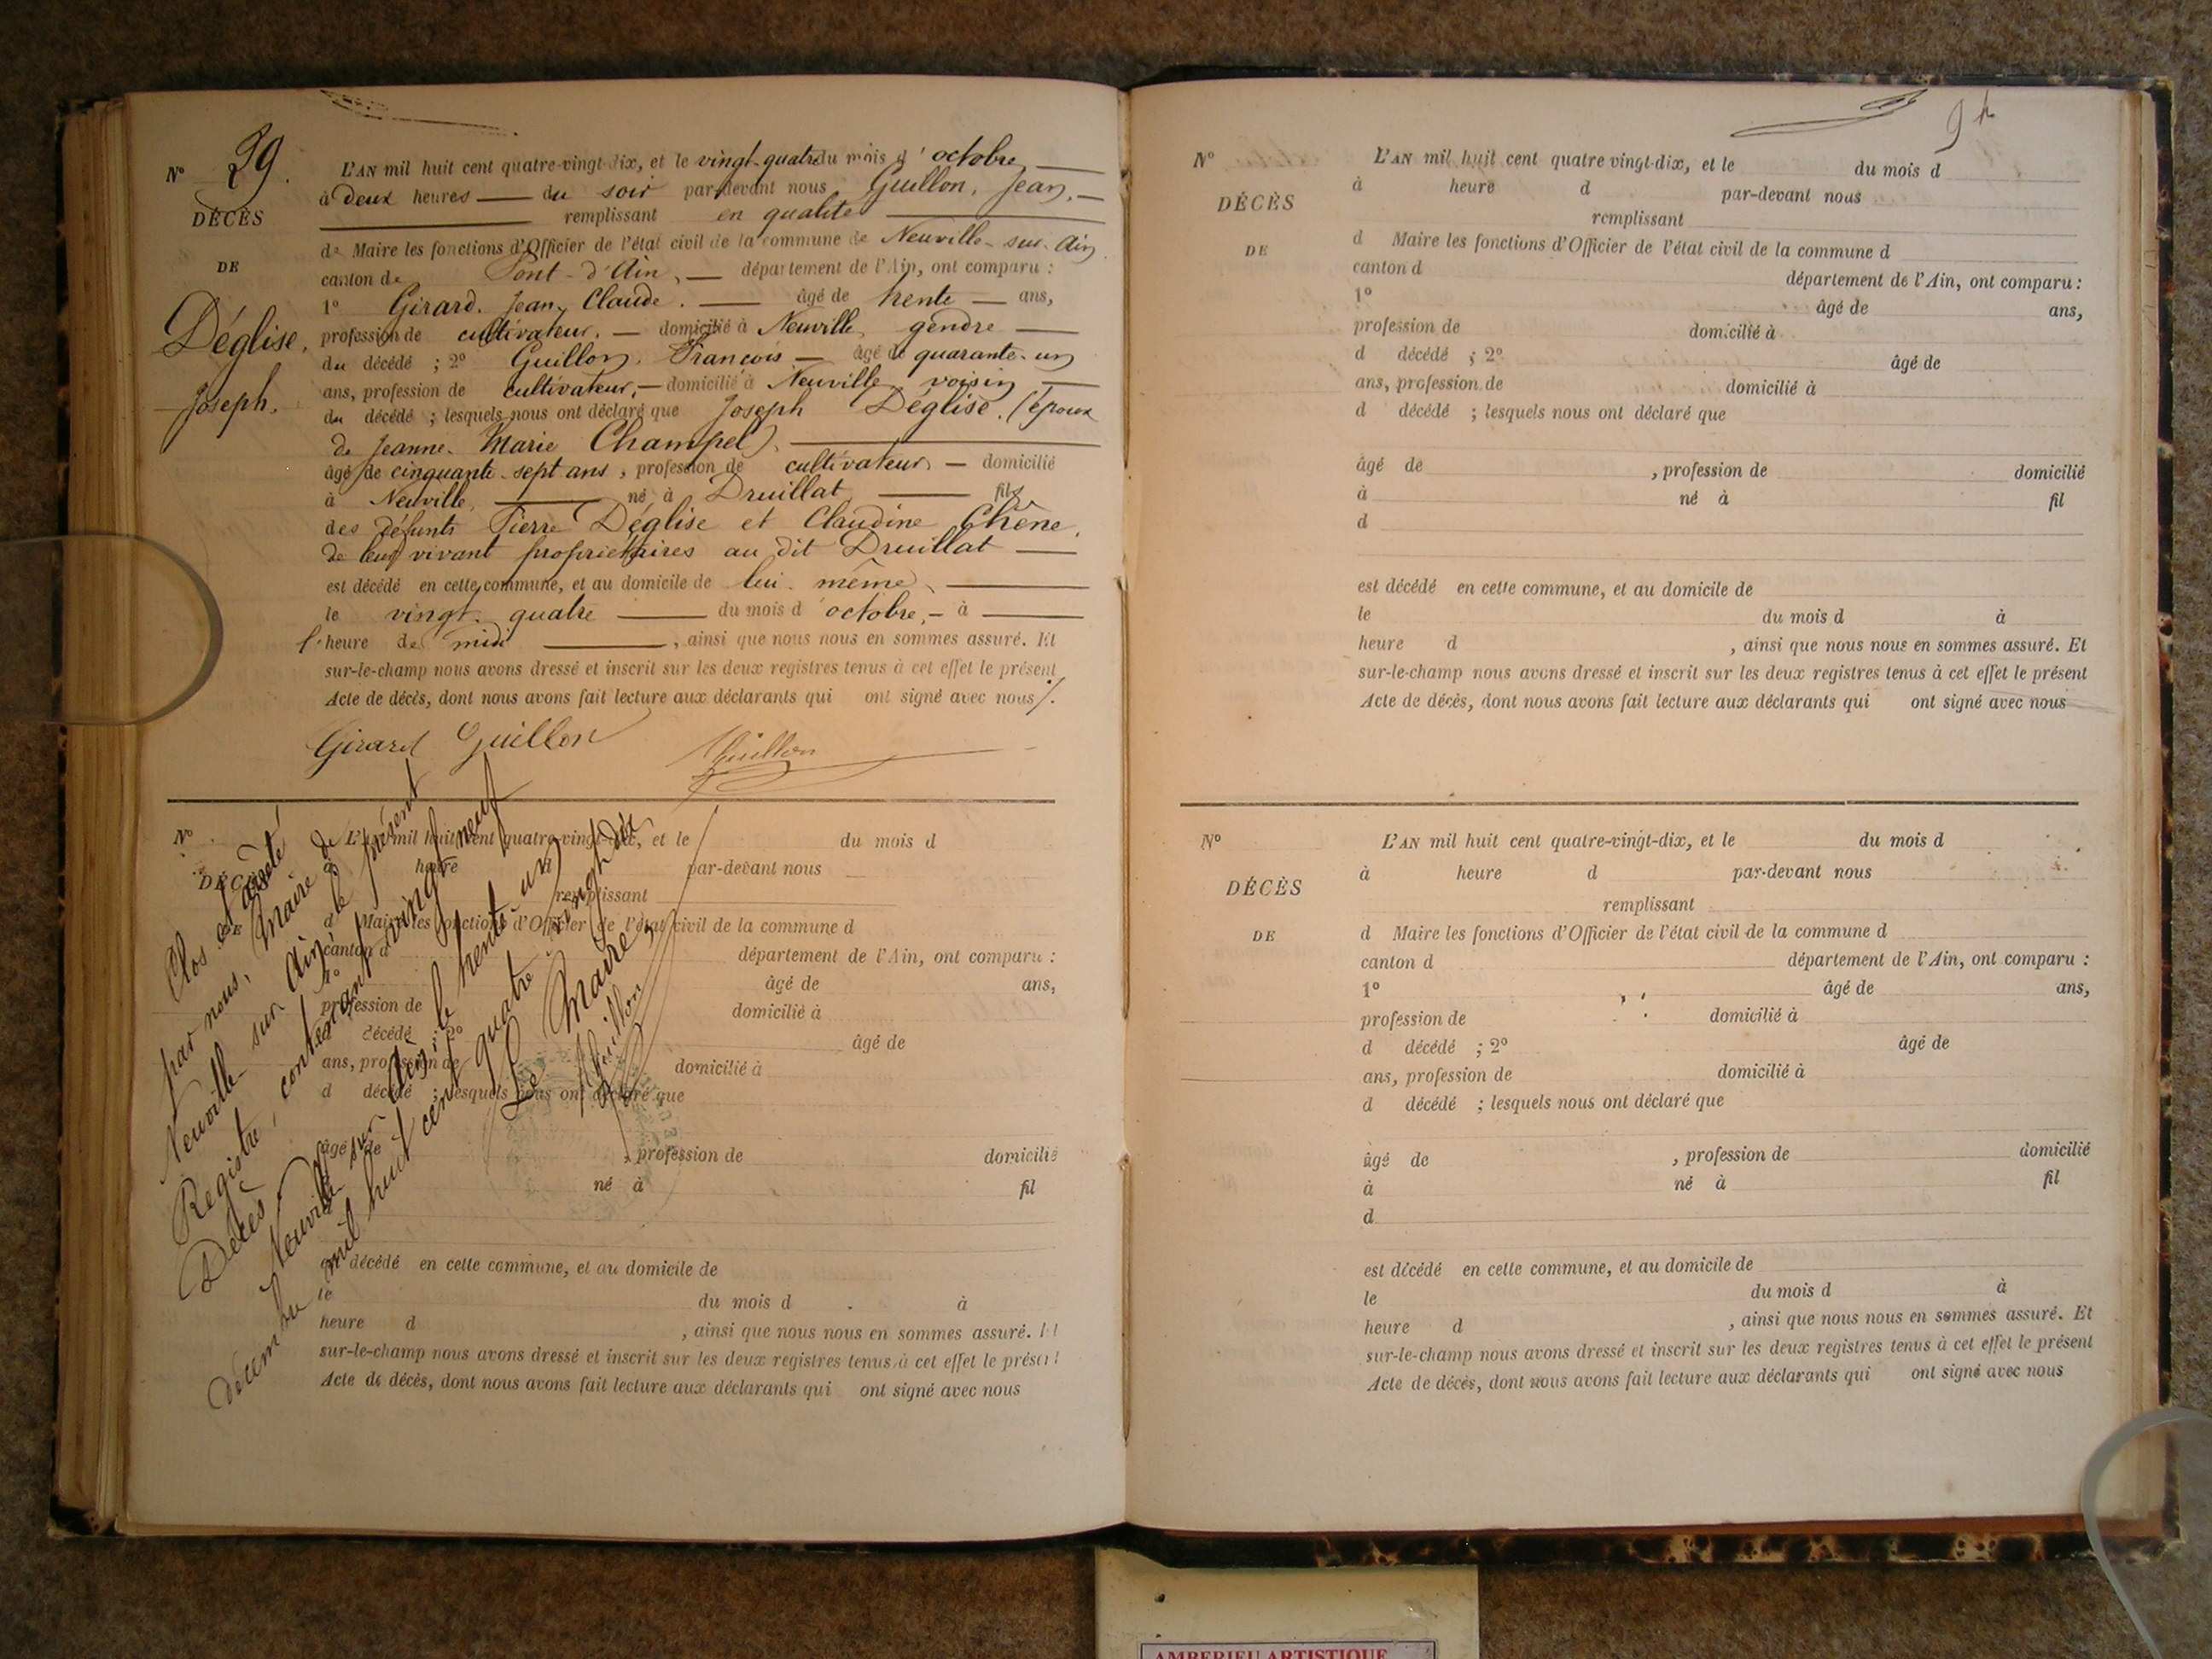 N° 29.
DÉCÈS
DE
Déglise,
Joseph.
L'AN mil huit cent quatre-vingt-dix, et le vingt-quatre du mois d'octobre,
à deux heures du soir par-devant nous Guillon, Jean,
remplissant en qualité
de Maire les fonctions d'Officier de l'état civil de la commune de Neuville-sur-Ain
canton de Pont-d'Ain, département de l'Ain, ont comparu :
1° Girard, Jean, Claude. âgé de trente ans,
profession de cultivateur, domicilié à Neuville, gendre
du décédé ; 2° Guillon, François âgé de quarante-un
ans, profession de cultivateur, domicilié à Neuville, voisin
du décédé ; lesquels nous ont déclaré que Joseph Déglise, (époux
de Jeanne-Marie Champel),
âgé de cinquante-sept ans, profession de cultivateur, domicilié
à Neuville, né à Druillat fils
des défunts Pierre Déglise et Claudine Chêne,
de leur vivant propriétaires au dit Druillat
est décédé en cette commune, et au domicile de lui-même,
le vingt-quatre du mois d'octobre, à
l'heure de midi, ainsi que nous nous en sommes assuré. Et
sur-le-champ nous avons dressé et inscrit sur les deux registres tenus à cet effet le présent
Acte de décès, dont nous avons fait lecture aux déclarants qui ont signé avec nous/.
Girard Guillon JGuillon
N°
DÉCÈS
DE
L'AN mil huit cent quatre-vingt-dix, et le du mois d
à heure d par-devant nous
remplissant
d Maire les fonctions d'Officier de l'état civil de la commune d
canton d département de l'Ain, ont comparu :
1° âgé de ans,
profession de domicilié à
d décédé ; 2° âgé de
ans, profession de domicilié à
d décédé ; lesquels nous ont déclaré que
âgé de , profession de domicilié
né à fil
est décédé en cette commune, et au domicile de
le du mois d à
heure d , ainsi que nous nous en sommes assuré. Et
sur-le-champ nous avons dressé et inscrit sur les deux registres tenus à cet effet le présent
Acte de décès, dont nous avons fait lecture aux déclarants qui ont signé avec nous
Clos et arrêté
par nous, Maire de
Neuville-sur-Ain le présent
Registre, contenant vingt neuf
Décès
Neuville-sur-Ain, le trente-un
décembre mil huit cent quatre-vingt-dix
Le Maire,
JGuillon
N°
DÉCÈS
DE
L'AN mil huit cent quatre vingt-dix, et le du mois d
à heure d par-devant nous
remplissant
d Maire les fonctions d'Officier de l'état civil de la commune d
canton d département de l'Ain, ont comparu :
1° âgé de ans,
profession de domicilié à
d décédé ; 2° âgé de
ans, profession de domicilié à
d décédé ; lesquels nous ont déclaré que
âgé de , profession de domicilié
à né à fil
d
est décédé en cette commune, et au domicile de
le du mois d à
heure d , ainsi que nous nous en sommes assuré. Et
sur-le-champ nous avons dressé et inscrit sur les deux registres tenus à cet effet le présent
Acte de décès, dont nous avons fait lecture aux déclarants qui ont signé avec nous
N°
DÉCÈS
DE
L'AN mil huit cent quatre-vingt-dix, et le du mois d
à heure d par-devant nous
remplissant
d Maire les fonctions d'Officier de l'état civil de la commune d
canton d département de l'Ain, ont comparu :
1° âgé de ans,
profession de domicilié à
d décédé ; 2° âgé de
ans, profession de domicilié à
d décédé ; lesquels nous ont déclaré que
âgé de , profession de domicilié
à né à fil
d
est décédé en cette commune, et au domicile de
le du mois d à
heure d , ainsi que nous nous en sommes assuré. Et
sur-le-champ nous avons dressé et inscrit sur les deux registres tenus à cet effet le présent
Acte de décès, dont nous avons fait lecture aux déclarants qui ont signé avec nous
AMBERIEU ARTISTIQUE